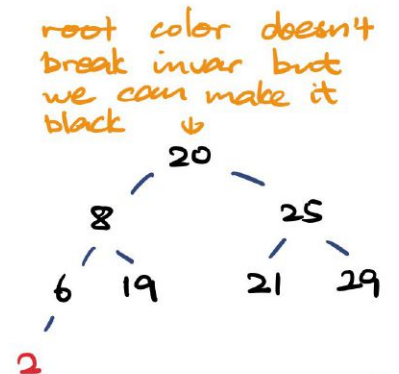 root color doesn't
break invar but
we can make it
black
20
8 25
6 19 21 29
2